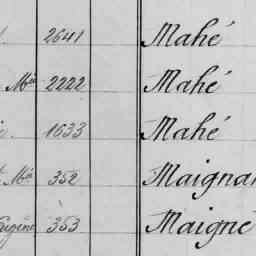 2641 Mahé
Mie 2222 Mahé
1633 Mahé
Mie 352 Maignan
Eugène 353 Maigné